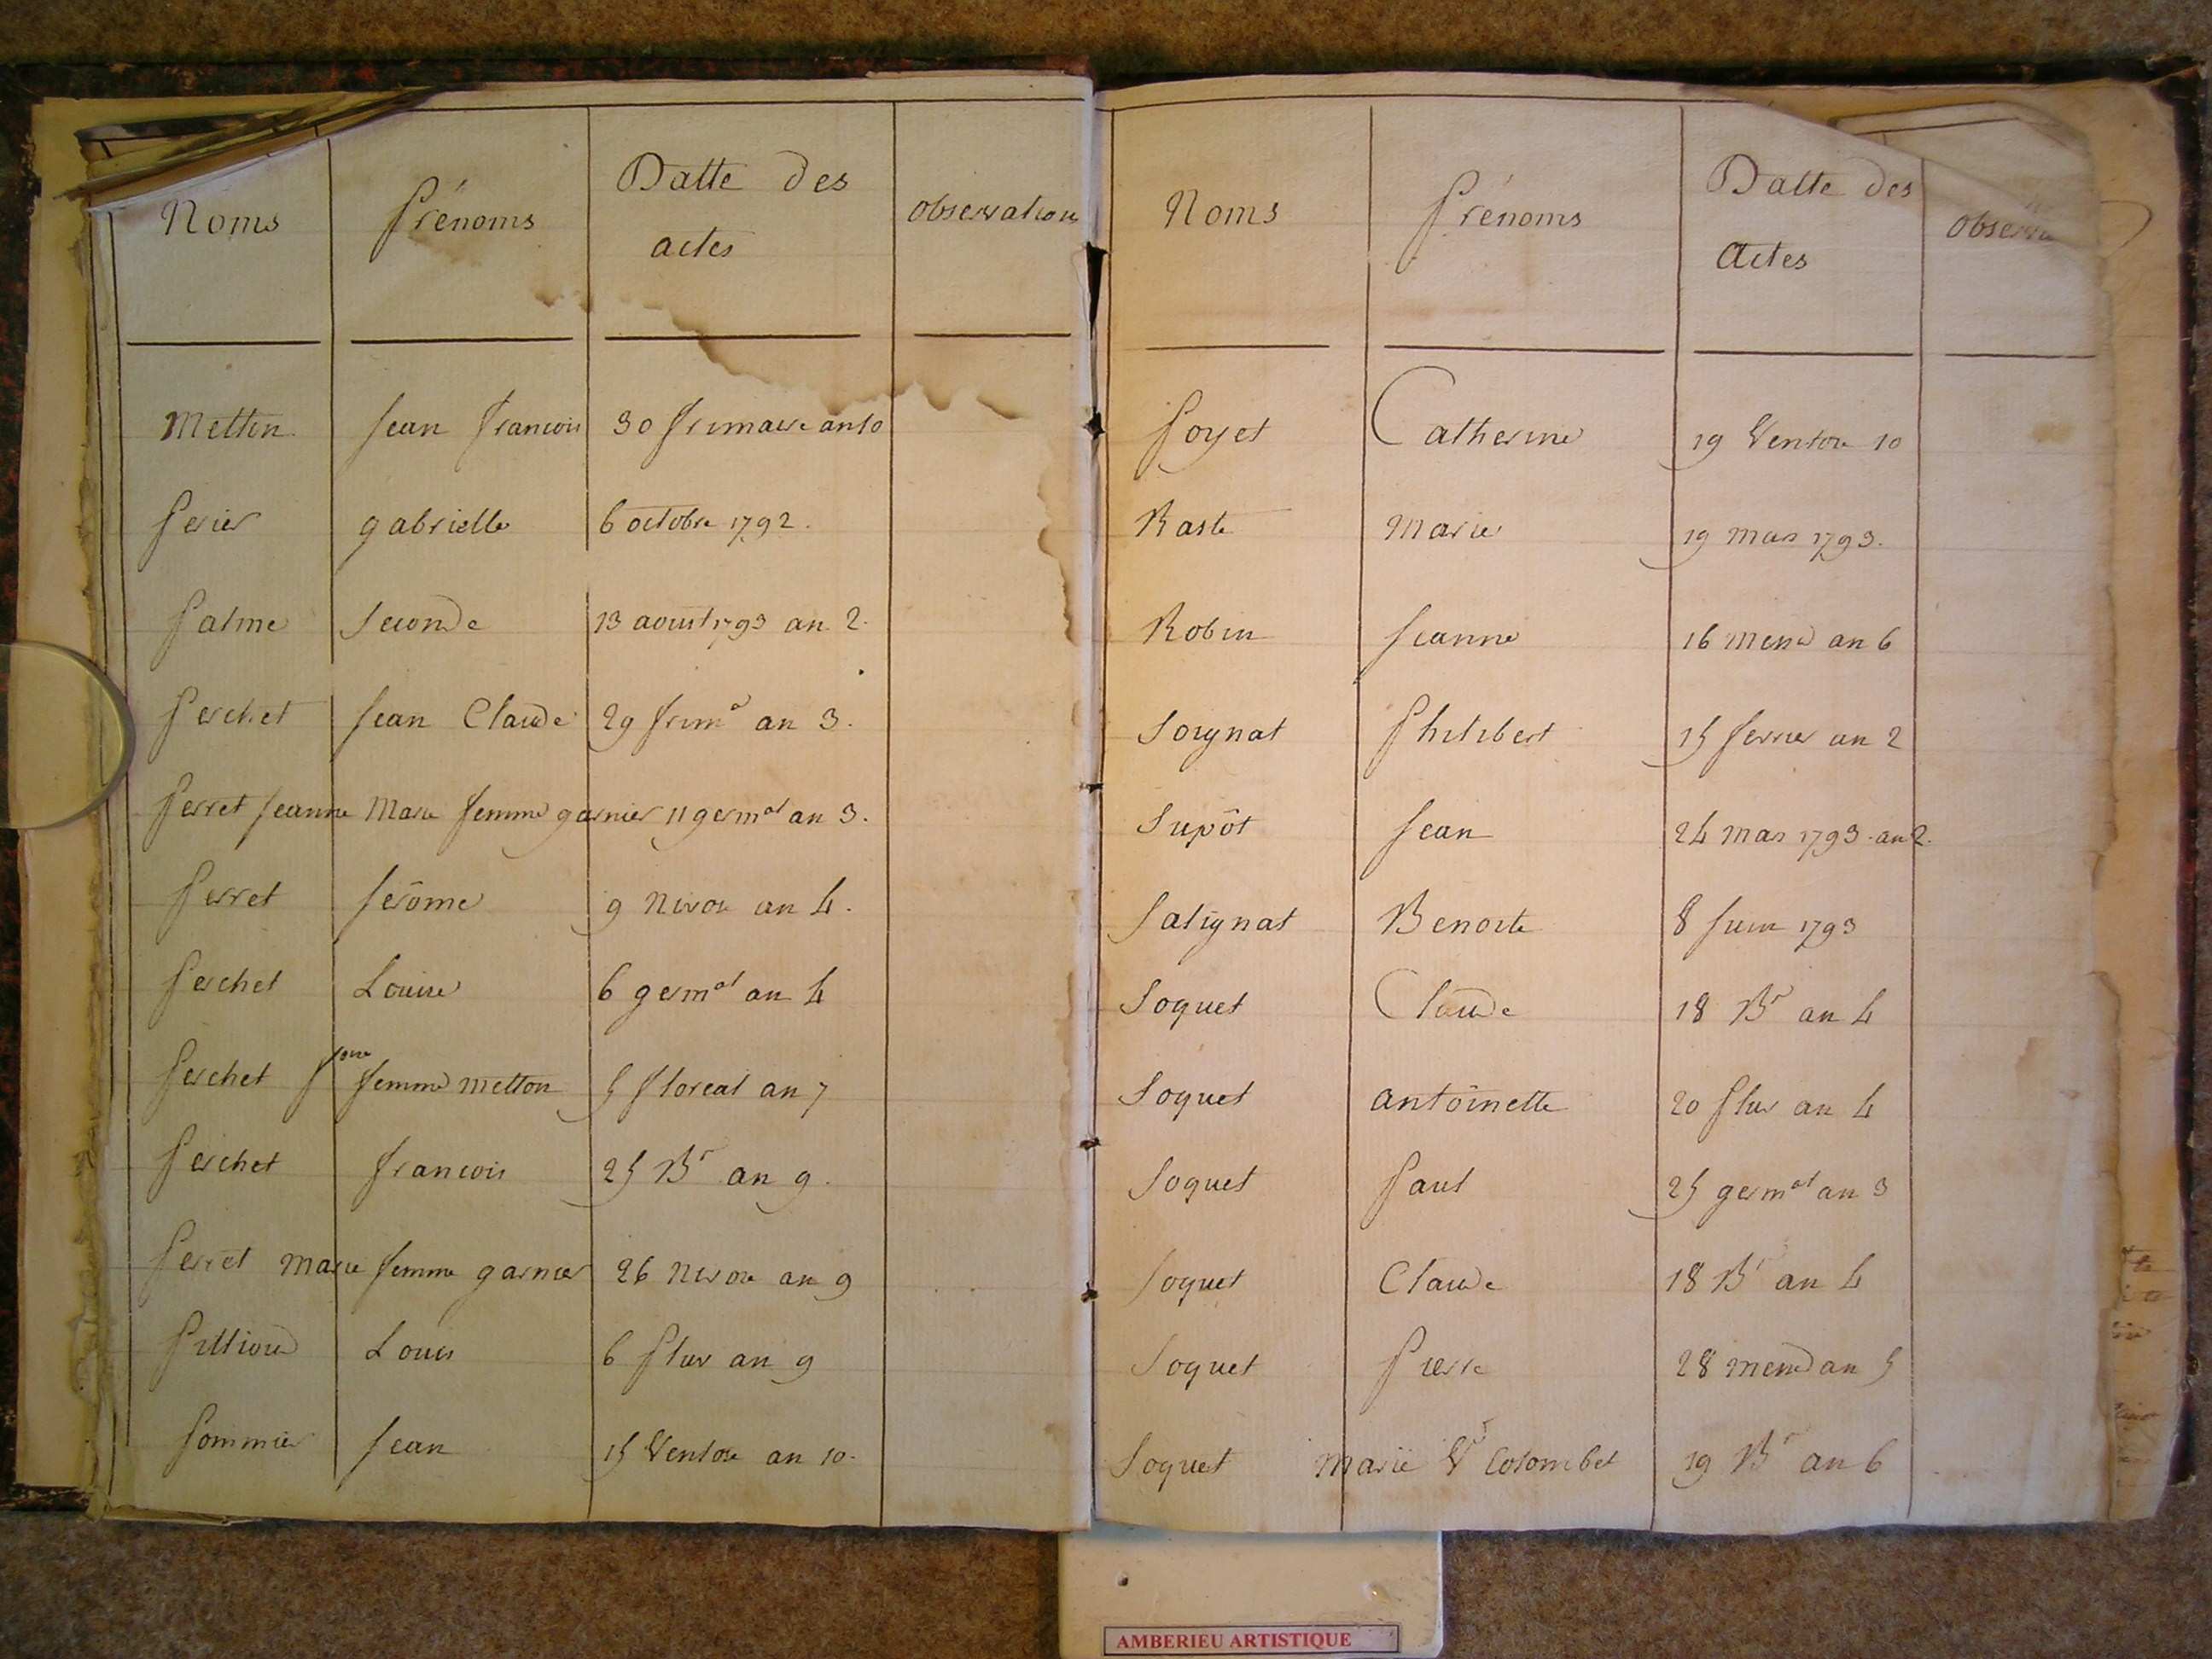 Noms Prénoms Datte des actes observations
Metton Jean francois 30 frimaire an 10
Perier gabrielle 6 octobre 1792.
Palme Seconde 13 aoust 1793 an 2.
Perchet Jean Claude 29 frimre an 3.
Perret Jeanne Marie femme garnier 11 germal an 3.
Perret Jerôme 9 Nivose an 4.
Perchet Louise 6 germal an 4
Perchet femme metton 5 floreal an 7
Perchet francois 25 Br an 9.
Perret marie femme garnier 26 Nivose an 9
Pillioud Louis 6 Pluv an 9
Pommier Jean 15 Ventose an 10.
Noms Prénoms Datte des Actes observa
Poyet Catherine 19 Ventose 10
Raste Marie 19 mars 1793.
Robin Jeanne 16 messd an 6
Soignat Philibert 15 fevrier an 2
Supôt Jean 24 mars 1793 an 2.
Salignat Benoite 8 Juin 1793
Soquet Claude 18 Br an 4
Soquet antoinette 20 Pluv an 4
Soquet Paul 25 germal an 3
Soquet Claude 18 Br an 4
Soquet Pierre 28 messd an 5
Soquet Marie Ve Colombet 19 Br an 6
AMBERIEU ARTISTIQUE